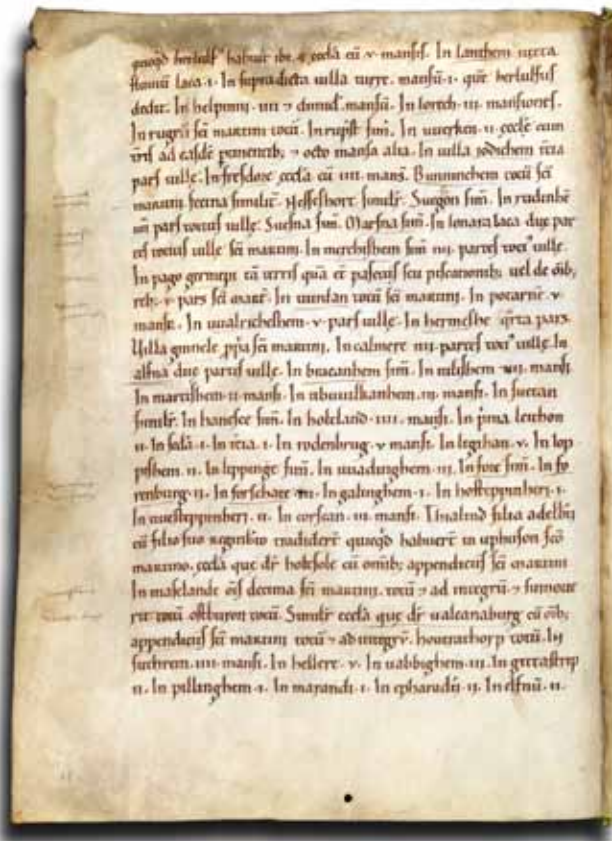 habuit ibi. eccła cū .v. mansis. In lanthem iuxta
fluuiū laca .i. In supradicta uilla mansū .i. quē herlulfus
dedit. In helpinni .iiii. ⁊ dimid mansū. In lorech .iii. mansiones.
In rugrū sc̄i martini totū. In sim̄. In uuerken .ii. eccłe cum
tr̄is ad easdē ⁊ octo mansa alia. In uilla iodichem
pars uille. In fresdore eccła cū .iiii. mans̄. Bunninchem totū sc̄i
martini similit̄. Hesseshort similit̄. Suegon sim̄. In rudenhē
pars totius uille. Suesna sim̄. Marsna sim̄. In lonara laca due par
tes totius uille sc̄i martini. In merchishem sim̄ .iiii. partes toti᷒ uille.
In pago germepi cū terris quā et pascuis seu piscationib; uel de oīb;
reb; .v. pars sc̄i mart̄. In uundan totū sc̄i martini. In potarnē .v.
mansi. In uualricheshem .v. pars uille. In hermeshe qrta pars.
Uilla gninele ppa sc̄i martini. In calmere .iiii. partes toti᷒ uille. In
alfna due partes uille. In bracanhem sim̄. In nilishem .vii. mansi.
In martishem .ii. mansi. In .iii. mansi. In suetan
similt̄. In hanesce sim̄. In holtland .iiii. mansi. In pma leithon
.ii. In secda .i. In tcia .i. In rodenbrug .v. mansi. In legihan .v. In lop
pishem .ii. In lippinge sim̄. In uuadinghem .iii. In fore sim̄. In fo
renburg .ii. In forschate .iii. In galinghem .i. In hosteppinheri .i.
In uuesteppinheri .ii. In corscan .iii. mansi. filia adelbti
cū filio suo reginbto tradider̄ quicqd habuer̄ in uphuson sc̄o
martino. eccła que dr̄ holtsole cū omib; appendiciis sc̄i martini
In maselande oīs decima sc̄i martini. totū ⁊ ad integrū.
totū ostburon totū. Similt̄ eccła que dr̄ ualcanaburg cū oīb;
appendiciis sc̄i martini totū ⁊ ad integrū. houtrathorp totū. In
suthrem .iiii. mansi. In hellere .v. In uabbighem .iii. In geztastrip
.ii. In pillinghem .i. In marandi .i. In epharudū .ii. In elfnū .ii.